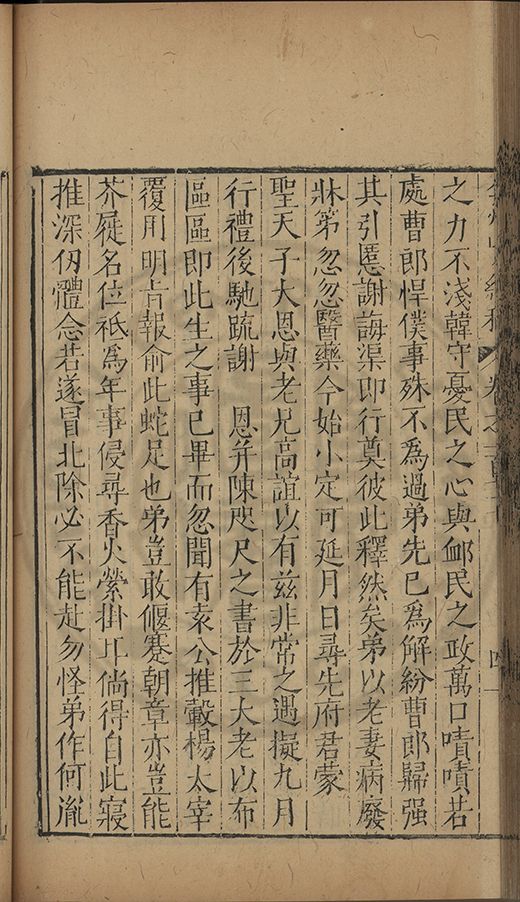 之力不淺韓守憂民之心與䘏民之政萬口嘖嘖若
處曹郎悍僕事殊不爲過弟先已爲解紛曹郎歸强
其引慝謝誨渠即行奠彼此釋然矣弟以老妻病廢
牀第忽忽醫藥今始小定可延月日尋先府君蒙
聖天子大恩與老兄高誼以有茲非常之遇擬九月
行禮後馳䟽謝　恩并陳咫尺之書於三大老以布
區區即此生之事已畢而忽聞有袁公推轂楊太宰
覆用明旨報俞此蛇足也弟豈敢偃蹇朝章亦豈能
芥屣名位祇爲年事侵尋香火縈掛耳倘得自此寢
推深仭體念若遂冒北除必不能赴勿怪弟作何胤